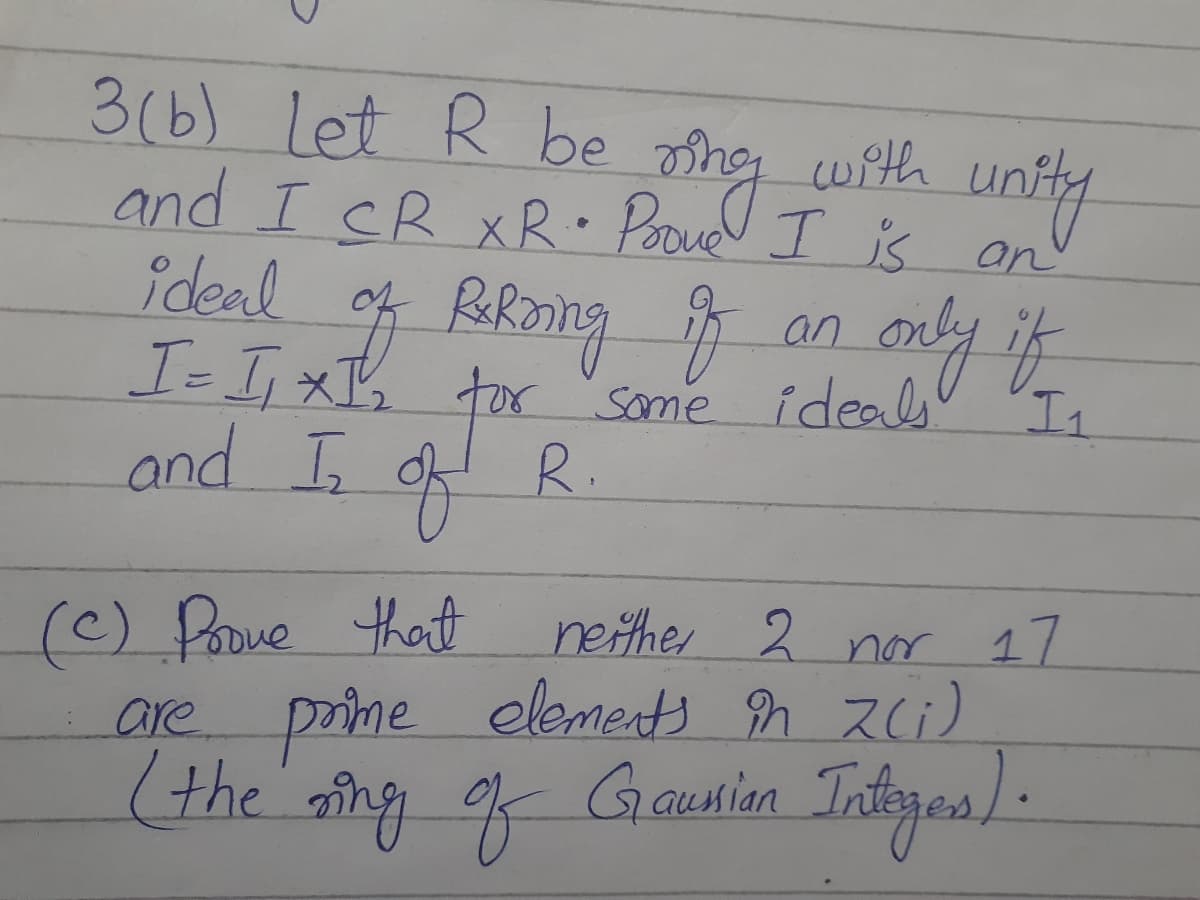 3(b) Let R be ring with unity
and I ⊆ R × R. Prove I is an
ideal of R×R ring if an only if
I = I₁ × I₂ for some ideals I₁
and I₂ of R.
(c) Prove that neither 2 nor 17
are prime elements in Z(i)
(the ring of Gaussian Integers).